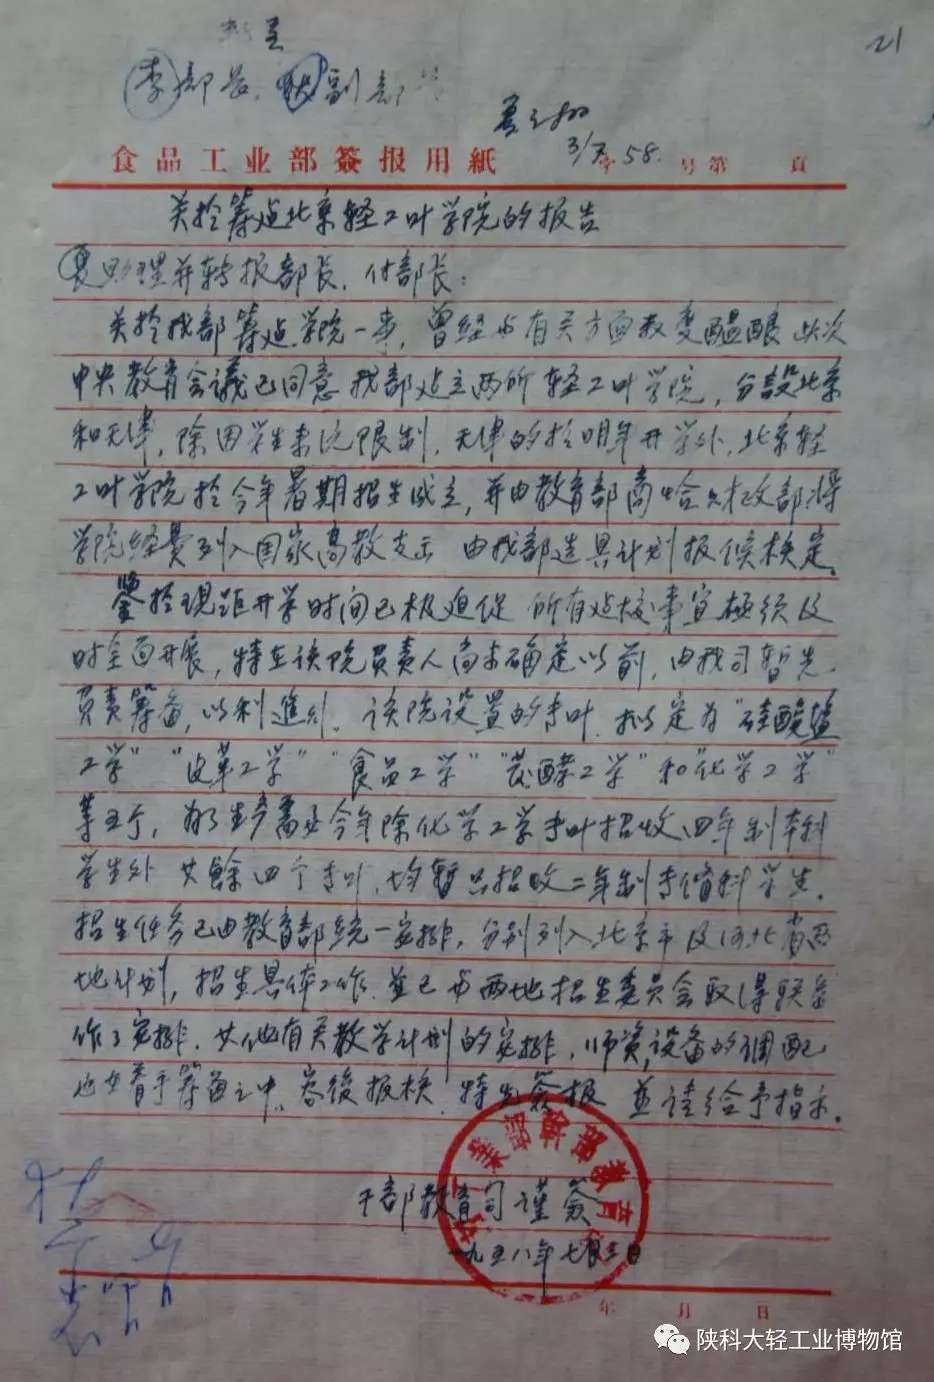 21
李部长、狄副部
3/7 58.
食品工业部簽报用紙 字 号第 頁
关於筹建北京轻工叶学院的报告
夏助理并转报部长、付部长：
关於我部筹建学院一事，曾经与有关方面数度醞酿 此次
中央教育会議已同意我部建立两所轻工叶学院，分設北京
和天津，除因学生来源限制，天津的於明年开学外，北京轻
工叶学院於今年暑期招生成立，并由教育部商哈财政部将
学院经费列入国家高教支出 由我部造具计划报候核定。
鉴於现距开学时间已极迫促 所有建校事宜極须及
时全面开展，特在该院負责人尚未确定以前，由我司暂先
負责筹备，以利進行。该院设置的专叶，拟定为“硅酸盐
工学”“皮革工学”“食品工学”“发酵工学”和“化学工学”
等五个，为了生产需要今年除化学工学专叶招收四年制本科
学生外 其餘四个专叶，均暫只招收二年制专修科学生。
招生任务已由教育部统一安排，分别列入北京市及河北省两
地计划，招生具体工作，並已与两地招生委员会取得联系
作了安排。其他有关教学计划的安排，师资，设备的调配
也在着手筹备之中。容後报核。特先簽报 並请给予指示。
干部教育司谨簽
一九五八年七月三日
年 月 日
陕科大轻工业博物馆